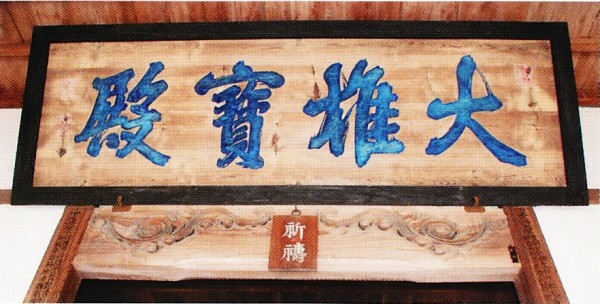 大雄寶殿
祈禱